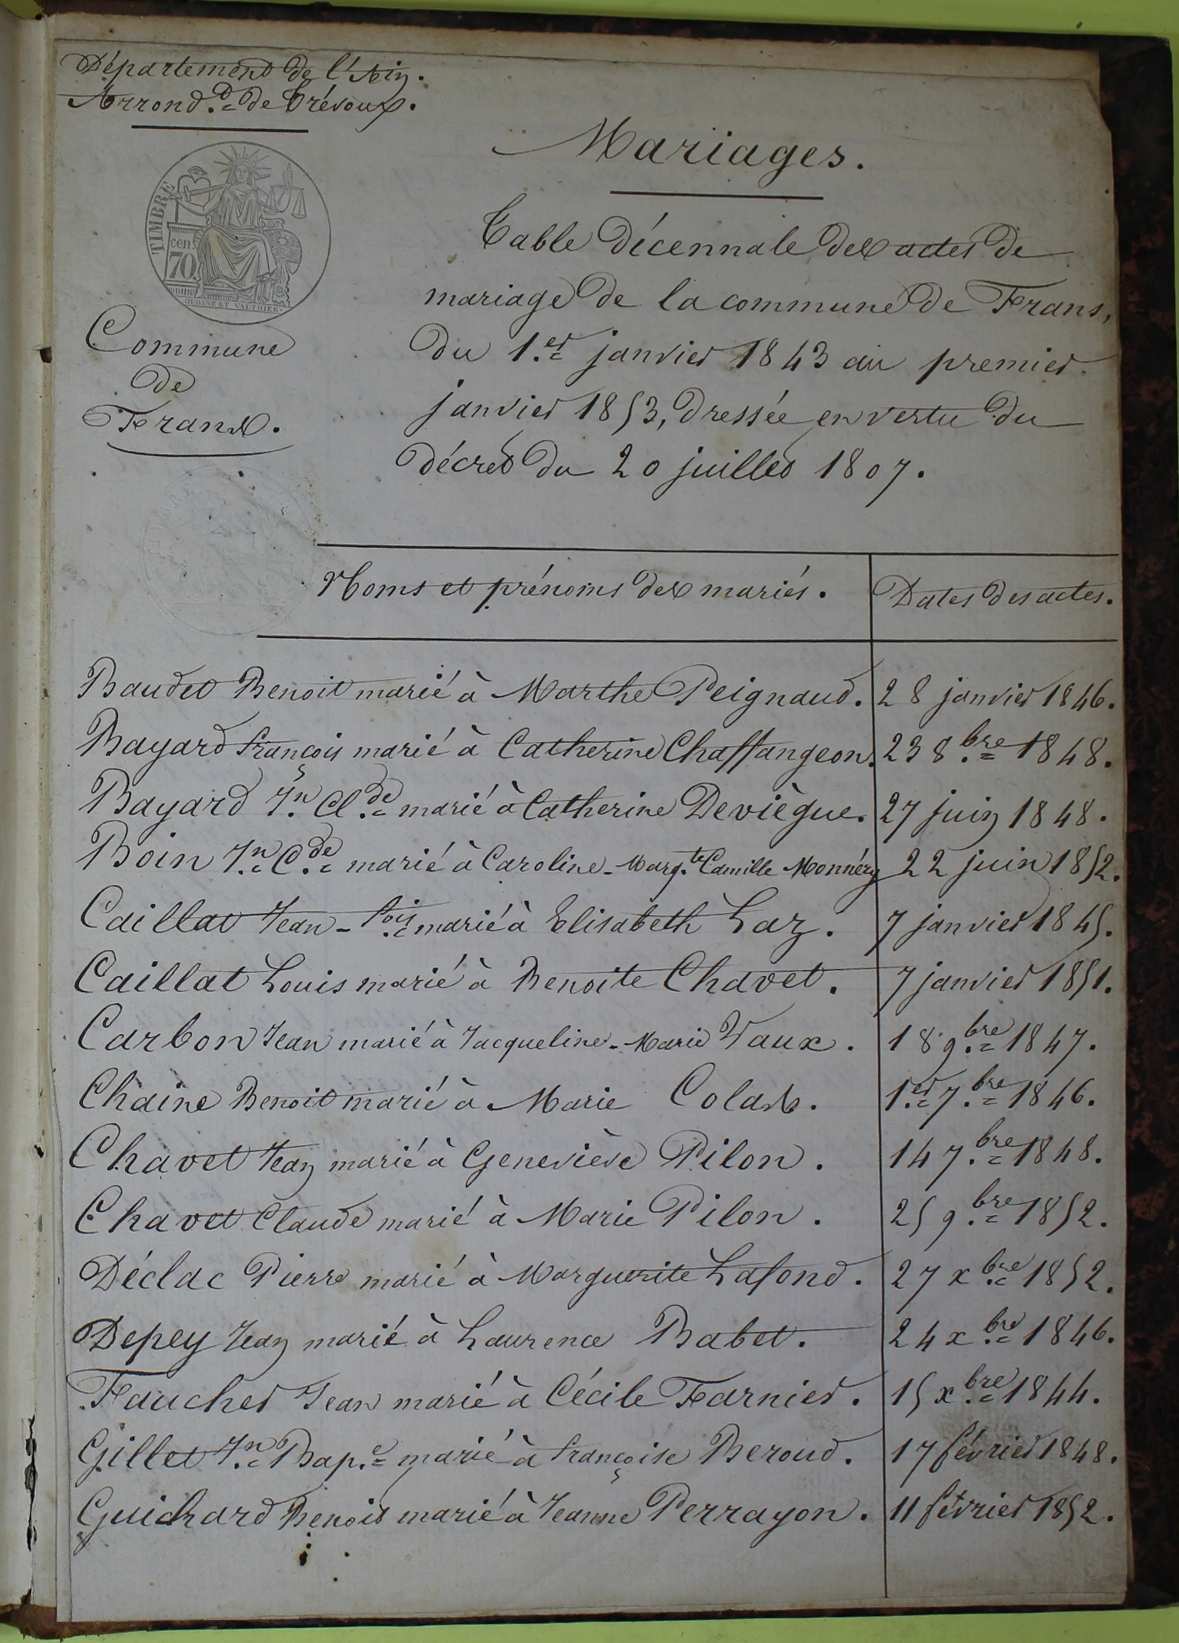 Département de l'Ain.
Arrond.t de Trévoux.
Mariages.
TIMBRE
cen.
70
Table décennale des actes de
mariage de la commune de Frans,
du 1.er janvier 1843 au premier
janvier 1853, dressée en vertu du
décret du 20 juillet 1807.
Commune
de
Frans.
Noms et prénoms des mariés. Dates des actes.
Baudet Benoit marié à Marthe Peignaud. 28 janvier 1846.
Bayard françois marié à Catherine Chaffangeon. 23 8.bre 1848.
Bayard J.n Cl.de marié à Catherine Deviègue. 27 juin 1848.
Boin J.n C.de marié à Caroline-Marg.te Camille Monnéry 22 juin 1852.
Caillat Jean-f.ois marié à Elisabeth Laz. 7 janvier 1845.
Caillat Louis marié à Benoite Chavet. 7 janvier 1851.
Carbon Jean marié à Jacqueline-Marie Vaux. 18 9.bre 1847.
Chaine Benoit marié à Marie Colas. 1.er 7.bre 1846.
Chavet Jean marié à Geneviève Pilon. 14 7.bre 1848.
Chavet Claude marié à Marie Pilon. 25 9.bre 1852.
Déclac Pierre marié à Marguerite Lafond. 27 x.bre 1852.
Depey Jean marié à Laurence Babet. 24 x.bre 1846.
Faucher Jean marié à Cécile Farnier. 15 x.bre 1844.
Gillet J.n Bap.e marié à françoise Beroud. 17 février 1848.
Guichard Benoit marié à Jeanne Perrayon. 11 février 1852.